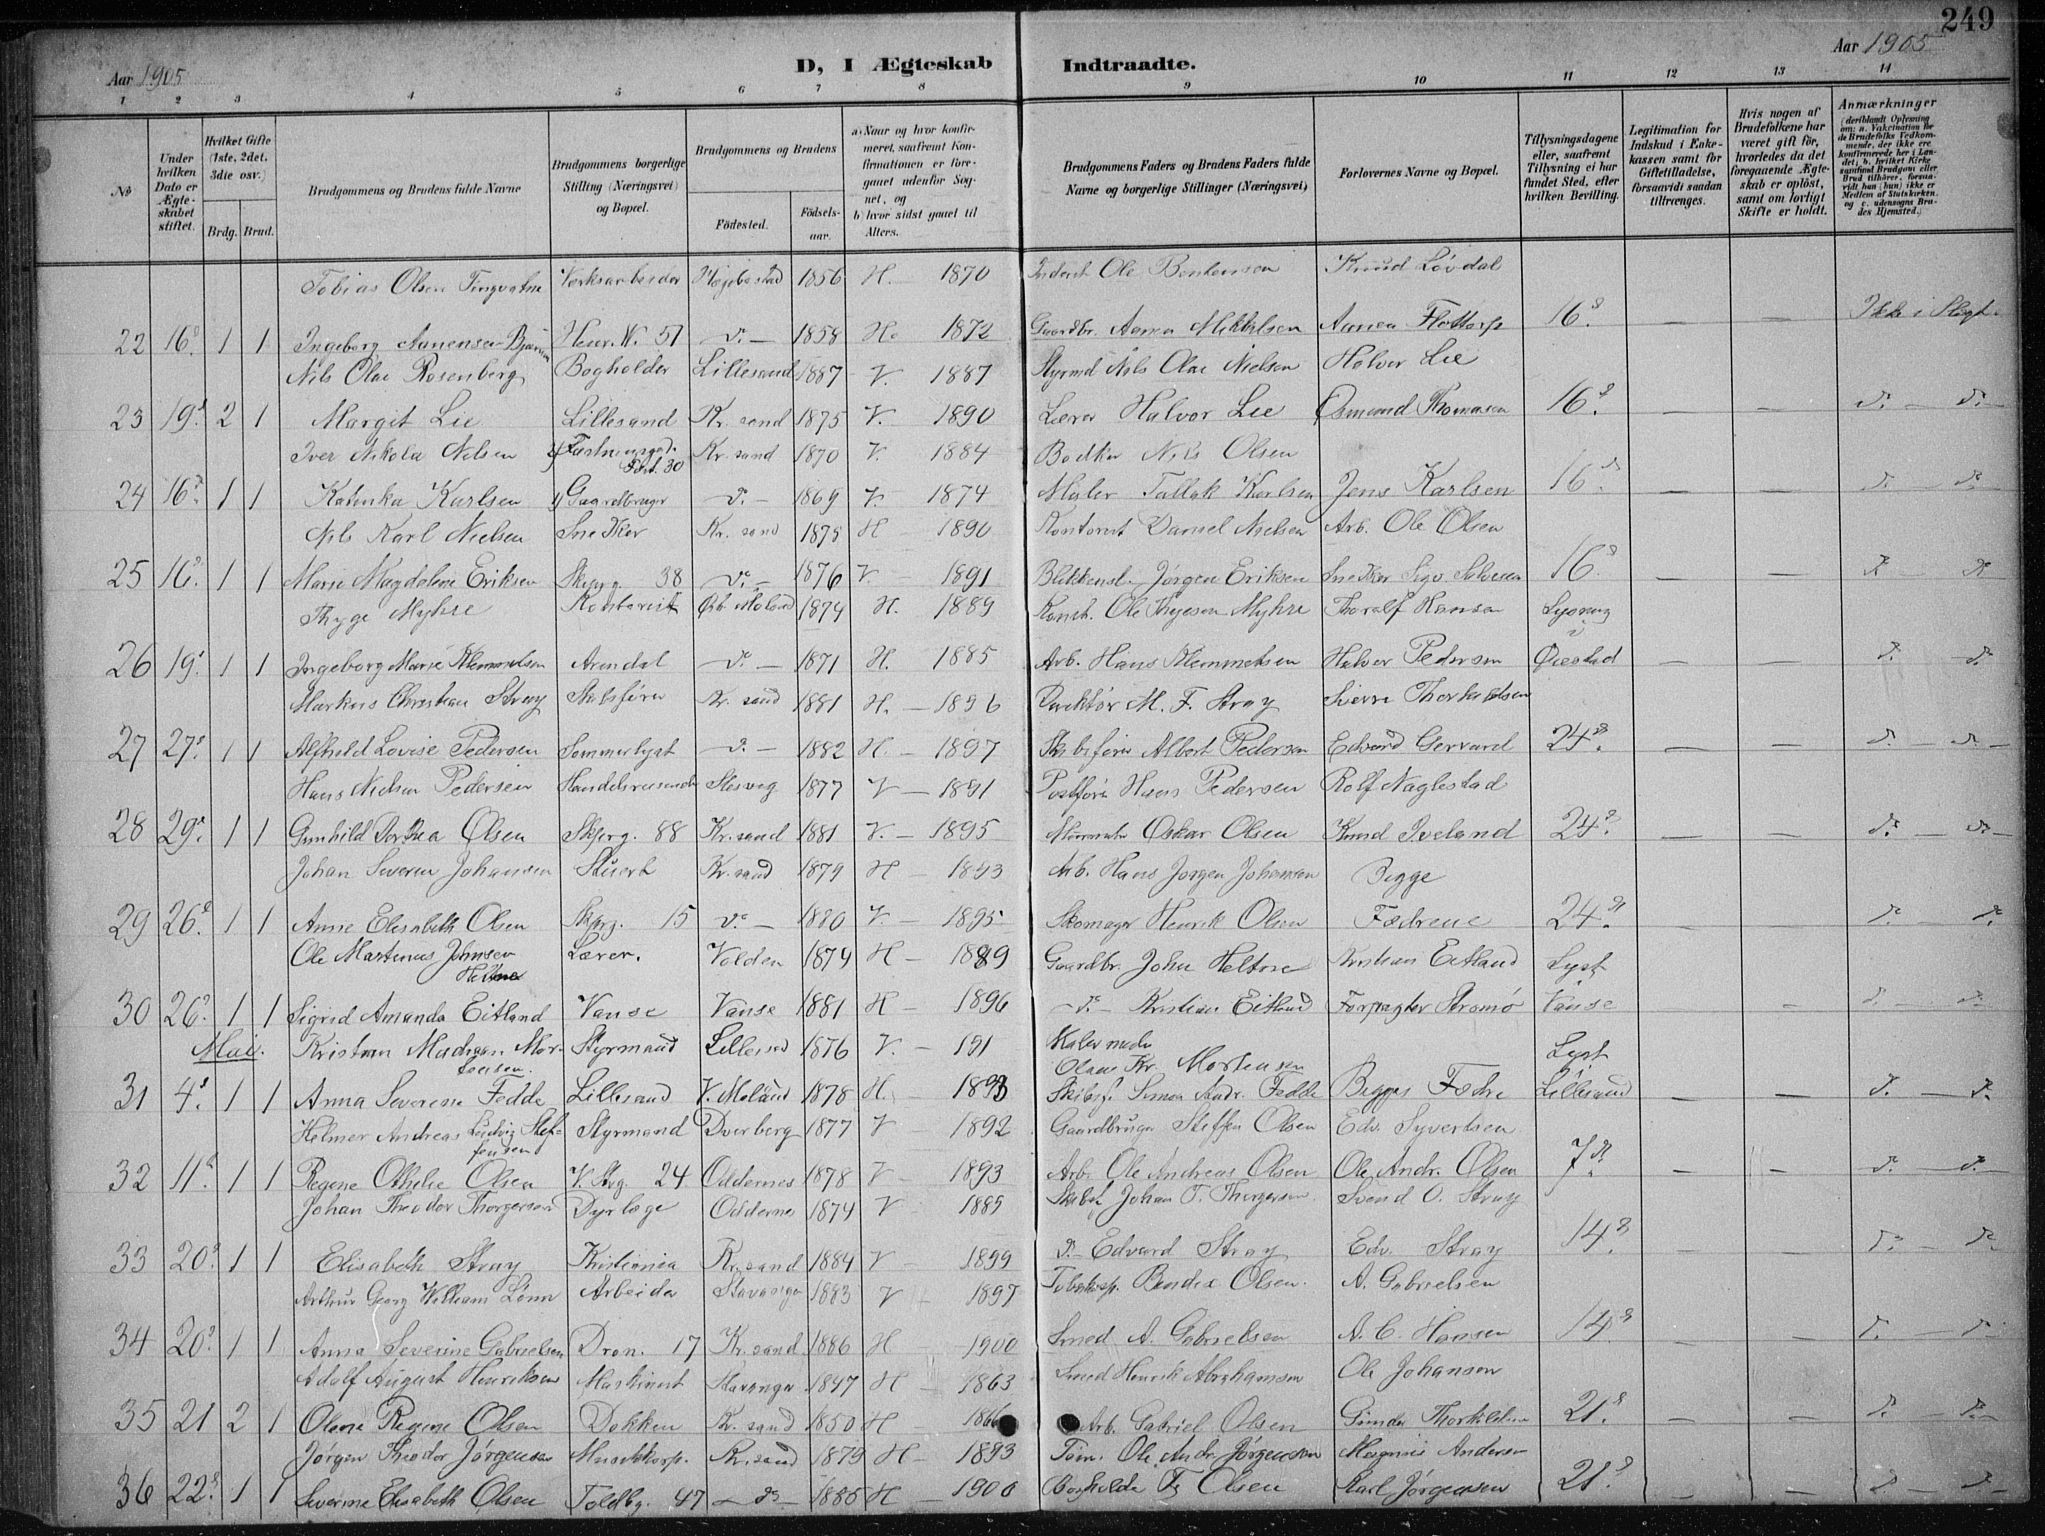 249
Aar 1905
D, I Ægteskab Indtraadte.
Aar 1905
1 2 3 4 5 6 7 8 9 10 11 12 13 14
No
Under hvilken Dato er Ægteskabet stiftet.
Hvilket Gifte (1ste, 2det, 3die osv.)
Brdg. Brud.
Brudgommens og Brudens fulde Navne
Brudgommens borgerlige Stilling (Næringsvei) og Bopæl.
Brudgommens og Brudens
Fødested. Fødselsaar.
a) Naar og hvor konfirmeret, saafremt Konfirmationen er foregaaet udenfor Sognet, og
b) hvor sidst gaaet til Alters.
Brudgommens Faders og Brudens Faders fulde Navne og borgerlige Stillinger (Næringsvei)
Forlovernes Navne og Bopæl.
Tillysningsdagene eller, saafremt Tillysning ei har fundet Sted, efter hvilken Bevilling.
Legitimation for Indskud i Enkekassen samt for Giftetilladelse, forsaavidt saadan tiltrænges.
Hvis nogen af Brudefolkene har været gift før, hvorledes da det foregaaende Ægteskab er opløst, samt om lovligt Skifte er holdt.
Anmærkninger
Tobias Olsen Verksarbeider Hægebostad 1856 H. 1870 Ole Bentensen Knud Løvdal
22 16 1 1 Ingeborg Aanensen Henr. W. 51 d. 1858 H. 1872 Gaardbr. Aanen Mikkelsen Aanen Flottorp 16. Ikke i Slegt.
Nils Olai Rosenberg Bogholder Lillesand 1887 V. 1887 Styrmd Nils Olai Nielsen Halvor Lie
23 19. 2 1 Margit Lie Lillesand Kr. sand 1875 V. 1890 Lærer Halvor Lie Osmund Thomasen 16. d. d.
Iver Nikolai Nilsen Kr. sand 1870 V. 1884 Bødker Nils Olsen
24 16. 1 1 Katinka Karlsen d. 1869 V. 1874 Maler Tallak Karlsen Jens Karlsen 16. d. d.
Nils Karl Nielsen Snekker Kr. sand 1875 H 1890 Kontorist Daniel Nielsen Arb. Ole Olsen
25 16. 1 1 Marie Magdalene Eriksen Skjerg. 38 d. 1876 V. 1891 Blikkensl. Jørgen Eriksen Snekker Sigv. Salvesen 16. d. d.
Thyge Myhre Kontorist 1874 H. 1889 Ole Thygesen Myhre Thoralf Hansen Lysning i
26 19. 1 1 Ingeborg Marie Klemmetsen Arendal d. 1871 H. 1885 Arb. Hans Klemmetsen Halvor Pedersen Øiestad d. d.
Markus Christian Stray Skibsfører Kr. sand 1881 H. 1896 Direktør M. F. Stray Sverre Thorkildsen
27 27. 1 1 Alfhild Lovise Pedersen Sommerlyst d. 1882 H. 1897 Skibsfører Albert Pedersen Edvard Gervard 24. d. d.
Hans Nielsen Pedersen Handelsreisende Slesvig 1877 V 1891 Postfører Hans Pedersen Rolf Naglestad
28 29. 1 1 Gunhild Dorthea Olsen Skjerg. 88 Kr. sand 1881 V. 1895 Oskar Olsen Knud Iveland 24. d. d.
Johan Severin Johansen Stuert Kr. sand 1879 H 1893 Arb. Hans Jørgen Johansen Begge
29 26. 1 1 Anne Elisabeth Olsen Skjerg. 15 d. 1880 V. 1895 Skomager Henrik Olsen Fædrene 24. d. d.
Ole Martinus Johnsen Heltne Lærer. Volden 1874 H 1889 Gaardbr. John Heltne Kristian Eitland Lyst
30 26. 1 1 Sigrid Amanda Eitland Vanse Vanse 1881 H 1896 d. Kristian Eitland Forpagter Strømø Vanse d. d.
Mai. Kristian Mortensen. Styrmand Lillesand 1876 V. 191 Olaus Kr. Mortensen Lyst
31 4. 1 1 Anna Severine Fedde Lillesand V. Moland 1878 H. 1893 Skibsf. Simon Andr. Fedde Begges Fædre Lillesand d. d.
Helmer Andreas Ludvig Steffensen Styrmand Dverberg 1877 V 1892 Gaardbruger Steffen Olsen Edv. Syvertsen
32 11. 1 1 Regine Othelie Olsen V. Stg. 24 Oddernes 1878 V 1893 Arb. Ole Andreas Olsen Ole Andr. Olsen 7. d. d.
Johan Theodor Thorgersen Dyrlæge Oddernes 1874 V 1889 Skibsf. Johan T. Thorgersen Svend O. Stray
33 20. 1 1 Elisabeth Stray Kristiania Kr. sand 1884 V 1899 d. Edvard Stray Edv. Stray 14. d. d.
Arthur Georg William Lønn Arbeider Stavanger 1883 V 1897 Bendix Olsen. A. Gabrielsen
34 20. 1 1 Anna Severine Gabrielsen Dron. 17 Kr. sand 1886 H 1900 Smed A. Gabrielsen A. C. Hansen 14. d. d.
Adolf August Henriksen Maskinist Stavanger 1847 H 1863 Smed Henrik Abrahamsen Ole Johansen
35 21 2 1 Olene Regine Olsen Dokken Kr. sand 1850 H 1866 Arb. Gabriel Olsen Thorkildsen 21. d. d.
Jørgen Theodor Jørgensen Musikkorp. Kr. sand 1879 H 1893 Tøm. Ole Andr. Jørgensen Magnus Andersen
36 22. 1 1 Severine Elisabeth Olsen Toldbg. 47 d. 1885 H 1900 Bogholder Olsen Karl Jørgensen 21. d. d.